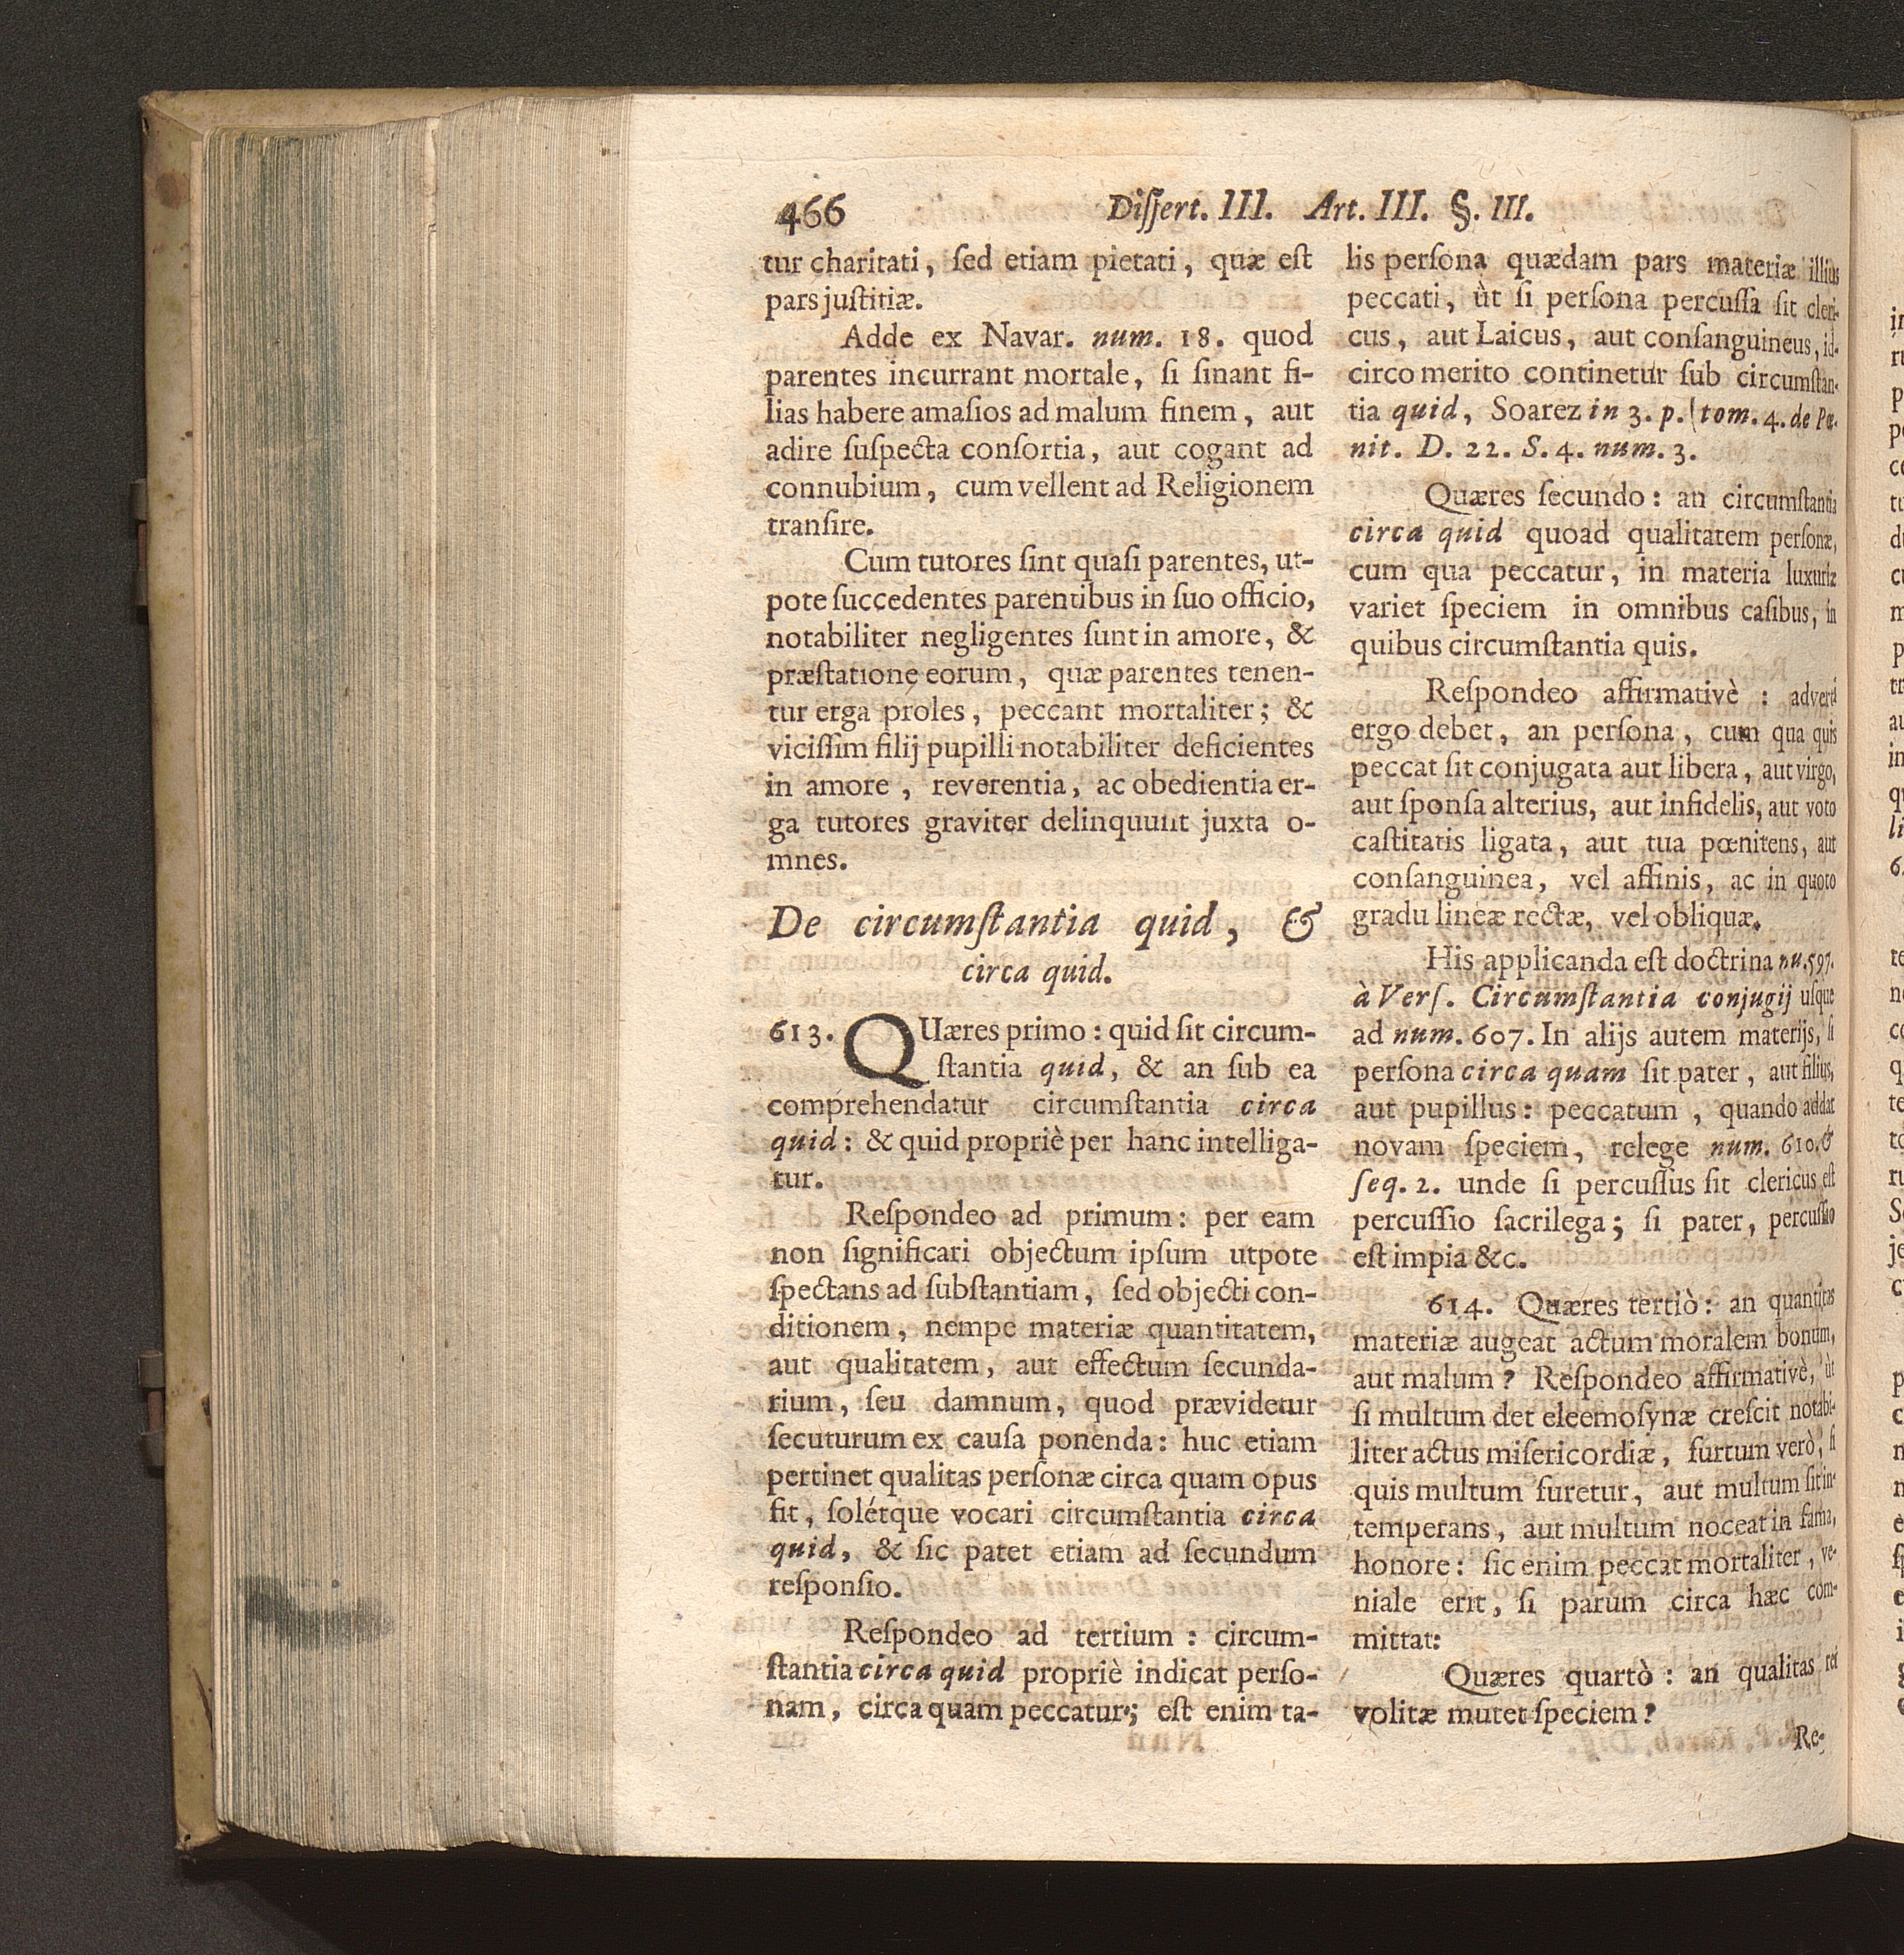 466 Diſſert. III. Art. III. §. III.
tur charitati, ſed etiam pietati, quæ eſt
pars juſtitiæ.
Adde ex Navar. num. 18. quod
parentes incurrant mortale, ſi ſinant fi-
lias habere amaſios ad malum finem, aut
adire ſuſpecta conſortia, aut cogant ad
connubium, cum vellent ad Religionem
tranſire.
Cum tutores ſint quaſi parentes, ut-
pote ſuccedentes parentibus in ſuo officio,
notabiliter negligentes ſunt in amore, &
præſtatione eorum, quæ parentes tenen-
tur erga proles, peccant mortaliter; &
viciſſim filij pupilli notabiliter deficientes
in amore, reverentia, ac obedientia er-
ga tutores graviter delinquunt juxta o-
mnes.
De circumſtantia quid, &
circa quid.
613. QUæres primo: quid ſit circum-
ſtantia quid, & an ſub ea
comprehendatur circumſtantia circa
quid: & quid propriè per hanc intelliga-
tur.
Reſpondeo ad primum: per eam
non ſignificari objectum ipſum utpote
ſpectans ad ſubſtantiam, ſed objecti con-
ditionem, nempe materiæ quantitatem,
aut qualitatem, aut effectum ſecunda-
rium, ſeu damnum, quod prævidetur
ſecuturum ex cauſa ponenda: huc etiam
pertinet qualitas perſonæ circa quam opus
fit, ſolétque vocari circumſtantia circa
quid, & ſic patet etiam ad ſecundum
reſponſio.
Reſpondeo ad tertium: circum-
ſtantia circa quid propriè indicat perſo-
nam, circa quam peccatur; eſt enim ta-
lis perſona quædam pars materiæ illius
peccati, ùt ſi perſona percuſſa ſit cleri-
cus, aut Laicus, aut conſanguineus, id-
circo merito continetur ſub circumſtan-
tia quid, Soarez in 3. p. tom. 4. de Pœ-
nit. D. 22. S. 4. num. 3.
Quæres ſecundo: an circumſtantia
circa quid quoad qualitatem perſonæ,
cum qua peccatur, in materia luxuriæ
variet ſpeciem in omnibus caſibus, in
quibus circumſtantia quis.
Reſpondeo affirmativè: adverti
ergo debet, an perſona, cum qua quis
peccat ſit conjugata aut libera, aut virgo,
aut ſponſa alterius, aut infidelis, aut voto
caſtitatis ligata, aut tua pœnitens, aut
conſanguinea, vel affinis, ac in quoto
gradu lineæ rectæ, vel obliquæ.
His applicanda eſt doctrina nu. 597.
à Verſ. Circumſtantia conjugij uſque
ad num. 607. In alijs autem materijs, ſi
perſona circa quam ſit pater, aut filius,
aut pupillus: peccatum, quando addat
novam ſpeciem, relege num. 610. &
ſeq. 2. unde ſi percuſſus ſit clericus eſt
percuſſio ſacrilega; ſi pater, percuſſio
eſt impia &c.
614. Quæres tertiò: an quantitas
materiæ augeat actum moralem bonum,
aut malum? Reſpondeo affirmativè, ùt
ſi multum det eleemoſynæ creſcit notabi-
liter actus miſericordiæ, furtum verò, ſi
quis multum furetur, aut multum ſit in-
temperans, aut multum noceat in fama,
honore: ſic enim peccat mortaliter, ve-
niale erit, ſi parum circa hæc com-
mittat:
Quæres quartò: an qualitas rei
volitæ mutet ſpeciem?
Re-